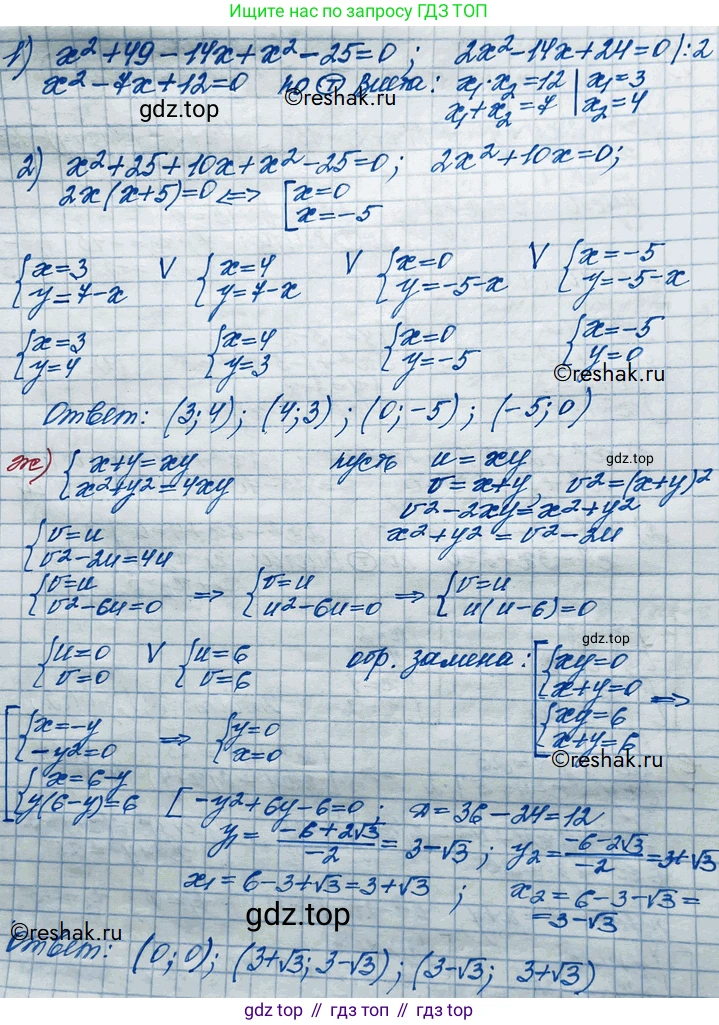 Ищите нас по запросу ГДЗ ТОП
1) x²+49-14x+x²-25=0; 2x²-14x+24=0 |:2
x²-7x+12=0 по Т Виета: x₁·x₂=12 | x₁=3
x₁+x₂=7 | x₂=4
gdz.top
©reshak.ru
2) x²+25+10x+x²-25=0; 2x²+10x=0;
2x(x+5)=0 <=> [x=0
x=-5
{x=3 V {x=4 V {x=0 V {x=-5
y=7-x y=7-x y=-5-x y=-5-x
{x=3 {x=4 {x=0 {x=-5
y=4 y=3 y=-5 y=0
©reshak.ru
Ответ: (3;4); (4;3); (0;-5); (-5;0)
ж) {x+y=xy пусть u=xy
x²+y²=4xy v=x+y, v²=(x+y)²
gdz.top
v²-2xy=x²+y²
{v=u x²+y²=v²-2u
v²-2u=4u
{v=u => {v=u => {v=u
v²-6u=0 u²-6u=0 u(u-6)=0
gdz.top
{u=0 V {u=6 обр. замена: [{xy=0
v=0 v=6 x+y=0 =>
{xy=6
x+y=6
©reshak.ru
[{x=-y => {y=0
-y²=0 x=0
{x=6-y
y(6-y)=6 [-y²+6y-6=0; D=36-24=12
y₁=(-6+2√3)/-2=3-√3; y₂=(-6-2√3)/-2=3+√3
x₁=6-3+√3=3+√3; x₂=6-3-√3=
=3-√3
gdz.top
©reshak.ru
Ответ: (0;0); (3+√3; 3-√3); (3-√3; 3+√3)
gdz.top // гдз топ // гдз.топ